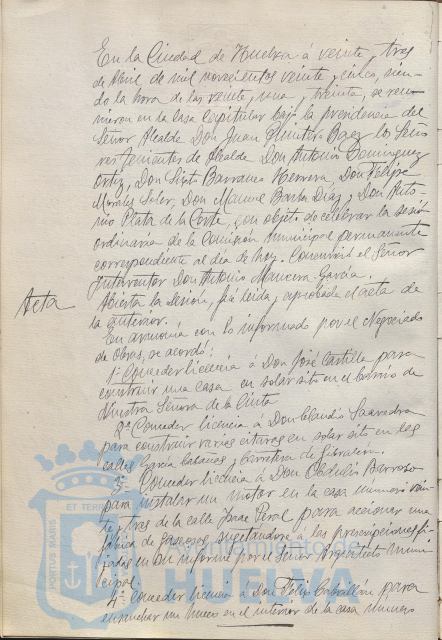 En la Ciudad de Huelva á veinte y tres
de Abril de mil novecientos veinte y cinco, sien-
do la hora de las veinte y una y treinta, se reu-
nieron en la casa Capitular bajo la presidencia del
Señor Alcalde Don Juan Quintero Baez los Seño-
res Tenientes de Alcalde Don Antonio Dominguez
Ortiz, Don Sixto Barranco Herrera, Don Felipe
Morales Soler, Don Manuel Barba Diaz y Don Anto-
nio Plata de la Corte, con objeto de celebrar la sesión
ordinaria de la Comisión municipal permanente
correspondiente al dia de hoy. Concurrió el Señor
Interventor Don Antonio Mancera Garcia.
Acta
Abierta la sesión, fué leida y aprobada el acta de
la anterior.
En armonia con lo informado por el Negociado
de Obras, se acordó:
1º Conceder licencia á Don José Castilla para
construir una casa en solar sito en el barrio de
Nuestra Señora de la Cinta
2º Conceder licencia á Don Claudio Saavedra
para construir varias en solar sito en las
calles Garcia Cabañas y Carretera de Gibraleon.
3º Conceder licencia á Don Obdulio Barroso
para instalar un motor en la casa número vein-
te y tres de la calle Isaac Peral para accionar una
fábrica de gaseosas, sujetandose á las prescripciones fi-
jadas en su informe por el Señor Arquitecto muni-
cipal.
4º Conceder licencia á Don Felix Caballan para
ensanchar un hueco en el interior de la casa número
ET TERRAE
PORTUS MARIS
Ayuntamiento de
HUELVA